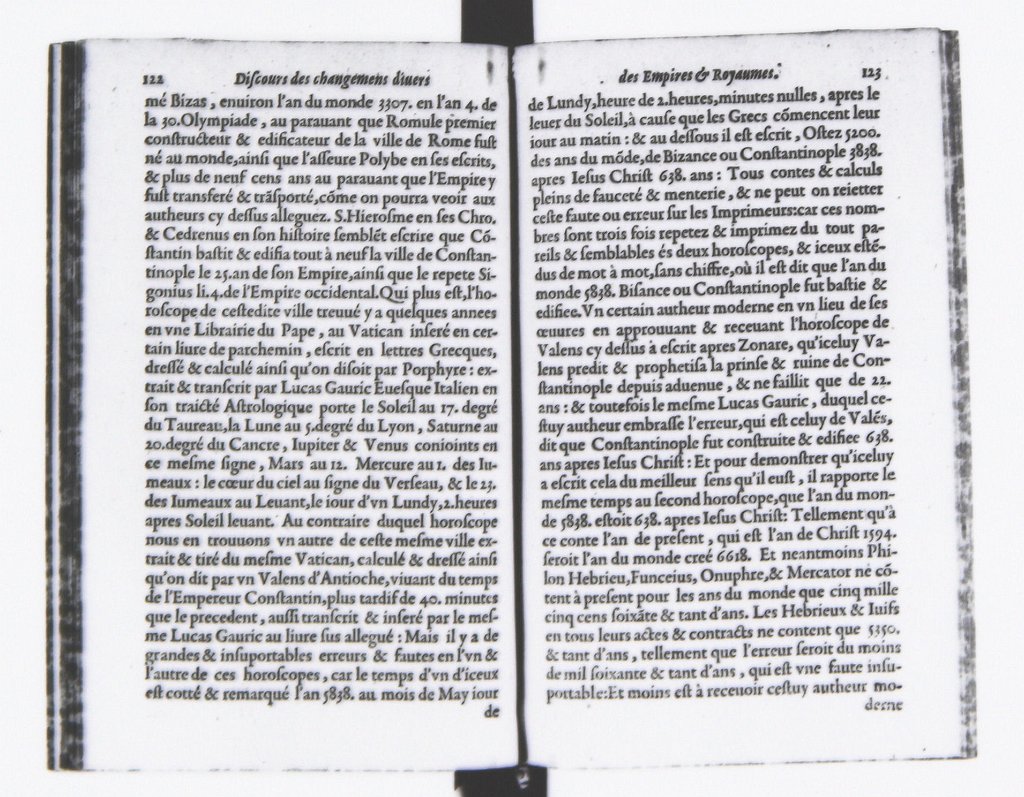 122 Diſcours des changemens diuers
mé Bizas, enuiron l'an du monde 3307. en l'an 4. de
la 30.Olympiade, au parauant que Romule premier
conſtructeur & edificateur de la ville de Rome fuſt
né au monde,ainſi que l'aſſeure Polybe en ſes eſcrits,
& plus de neuf cens ans au parauant que l'Empire y
fuſt transferé & trãſporté,cõme on pourra veoir aux
autheurs cy deſſus alleguez. S.Hieroſme en ſes Chro.
& Cedrenus en ſon hiſtoire ſemblẽt eſcrire que Cõ-
ſtantin baſtit & edifia tout à neuf la ville de Conſtan-
tinople le 25.an de ſon Empire,ainſi que le repete Si-
gonius li.4.de l'Empire occidental.Qui plus eſt,l'ho-
roſcope de ceſtedite ville treuué y a quelques annees
en vne Librairie du Pape, au Vatican inſeré en cer-
tain liure de parchemin, eſcrit en lettres Grecques,
dreſſé & calculé ainſi qu'on diſoit par Porphyre: ex-
trait & tranſcrit par Lucas Gauric Eueſque Italien en
ſon traicté Aſtrologique porte le Soleil au 17. degré
du Taureau,la Lune au 5.degré du Lyon, Saturne au
20.degré du Cancre, Iupiter & Venus conioints en
ce meſme ſigne, Mars au 12. Mercure au 1. des Iu-
meaux: le cœur du ciel au ſigne du Verſeau, & le 23.
des Iumeaux au Leuant,le iour d'vn Lundy,2.heures
apres Soleil leuant. Au contraire duquel horoſcope
nous en trouuons vn autre de ceſte meſme ville ex-
trait & tiré du meſme Vatican, calculé & dreſſé ainſi
qu'on dit par vn Valens d'Antioche,viuant du temps
de l'Empereur Conſtantin,plus tardif de 40. minutes
que le precedent, auſſi tranſcrit & inſeré par le meſ-
me Lucas Gauric au liure ſus allegué: Mais il y a de
grandes & inſuportables erreurs & fautes en l'vn &
l'autre de ces horoſcopes, car le temps d'vn d'iceux
eſt cotté & remarqué l'an 5838. au mois de May iour
de
des Empires & Royaumes. 123
de Lundy,heure de 2.heures,minutes nulles, apres le
leuer du Soleil,à cauſe que les Grecs cõmencent leur
iour au matin: & au deſſous il eſt eſcrit, Oſtez 5200.
des ans du mõde,de Bizance ou Conſtantinople 3838.
apres Ieſus Chriſt 638. ans: Tous contes & calculs
pleins de fauceté & menterie, & ne peut on reietter
ceſte faute ou erreur ſur les Imprimeurs:car ces nom-
bres ſont trois fois repetez & imprimez du tout pa-
reils & ſemblables és deux horoſcopes, & iceux eſtẽ-
dus de mot à mot,ſans chiffre,où il eſt dit que l'an du
monde 5838. Biſance ou Conſtantinople fut baſtie &
edifiee.Vn certain autheur moderne en vn lieu de ſes
œuures en approuuant & receuant l'horoſcope de
Valens cy deſſus à eſcrit apres Zonare, qu'iceluy Va-
lens predit & prophetiſa la prinſe & ruine de Con-
ſtantinople depuis aduenue, & ne faillit que de 22.
ans: & toutefois le meſme Lucas Gauric, duquel ce-
ſtuy autheur embraſſe l'erreur,qui eſt celuy de Valẽs,
dit que Conſtantinople fut conſtruite & edifiee 638.
ans apres Ieſus Chriſt: Et pour demonſtrer qu'iceluy
a eſcrit cela du meilleur ſens qu'il euſt, il rapporte le
meſme temps au ſecond horoſcope,que l'an du mon-
de 5838. eſtoit 638. apres Ieſus Chriſt: Tellement qu'à
ce conte l'an de preſent, qui eſt l'an de Chriſt 1594.
ſeroit l'an du monde creé 6618. Et neantmoins Phi-
lon Hebrieu,Funceius, Onuphre,& Mercator ne cõ-
tent à preſent pour les ans du monde que cinq mille
cinq cens ſoixãte & tant d'ans. Les Hebrieux & Iuifs
en tous leurs actes & contracts ne content que 5350.
& tant d'ans, tellement que l'erreur ſeroit du moins
de mil ſoixante & tant d'ans, qui eſt vne faute inſu-
portable:Et moins eſt à receuoir ceſtuy autheur mo-
derne